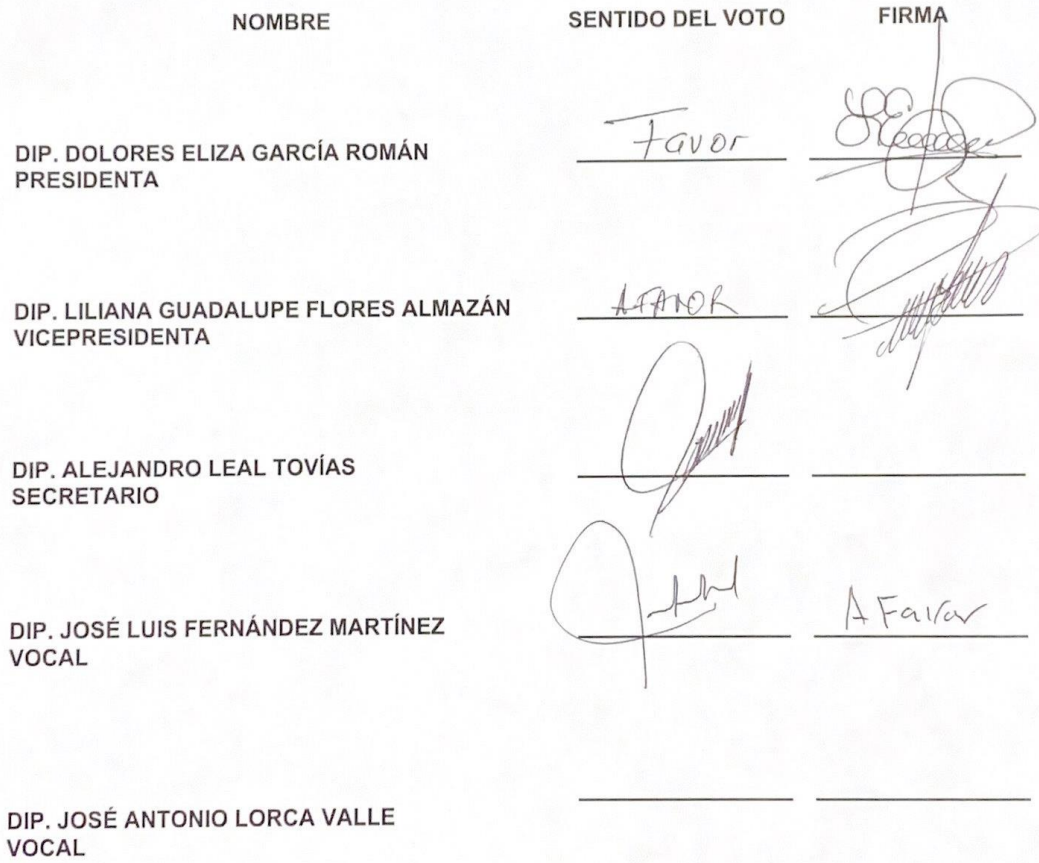 NOMBRE SENTIDO DEL VOTO FIRMA
Favor
DIP. DOLORES ELIZA GARCÍA ROMÁN
PRESIDENTA
A FAVOR
DIP. LILIANA GUADALUPE FLORES ALMAZÁN
VICEPRESIDENTA
DIP. ALEJANDRO LEAL TOVÍAS
SECRETARIO
A Favor
DIP. JOSÉ LUIS FERNÁNDEZ MARTÍNEZ
VOCAL
DIP. JOSÉ ANTONIO LORCA VALLE
VOCAL